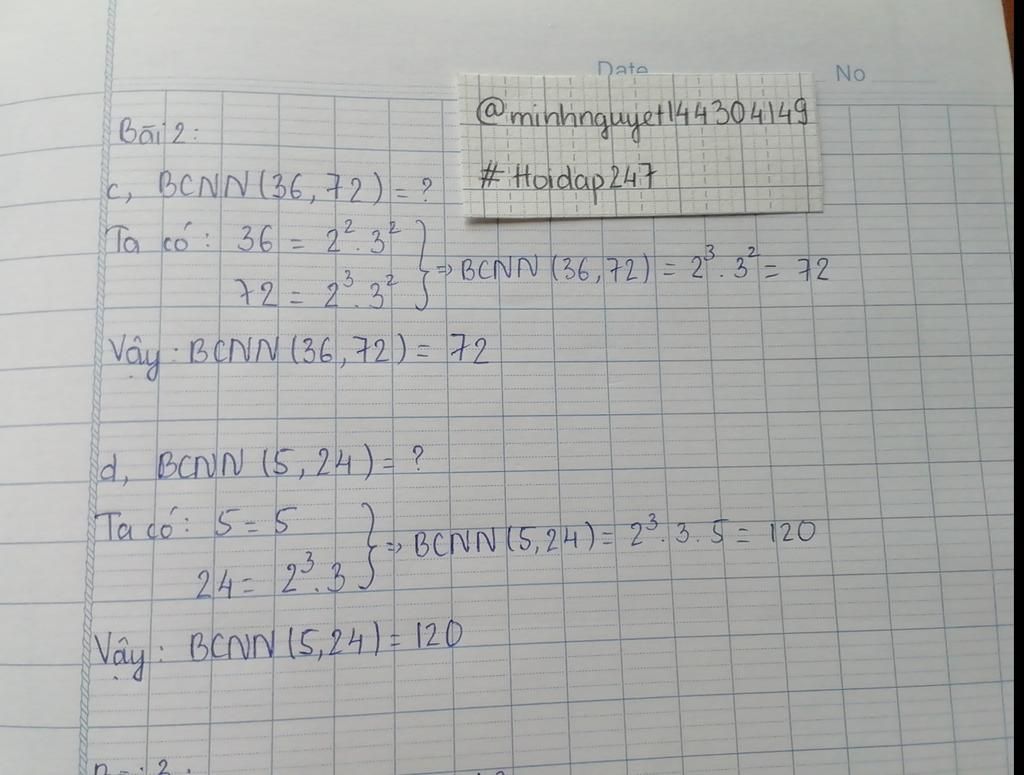 Date
No
@minhnguyet144304149
# Hoidap247
Bài 2:
c, BCNN(36,72) = ?
Ta có: 36 = 2². 3²
72 = 2³. 3² } => BCNN (36,72) = 2³. 3² = 72
Vậy: BCNN(36,72) = 72
d, BCNN (5,24) = ?
Ta có: 5 = 5
24 = 2³. 3 } => BCNN(5,24) = 2³. 3. 5 = 120
Vậy: BCNN(5,24) = 120